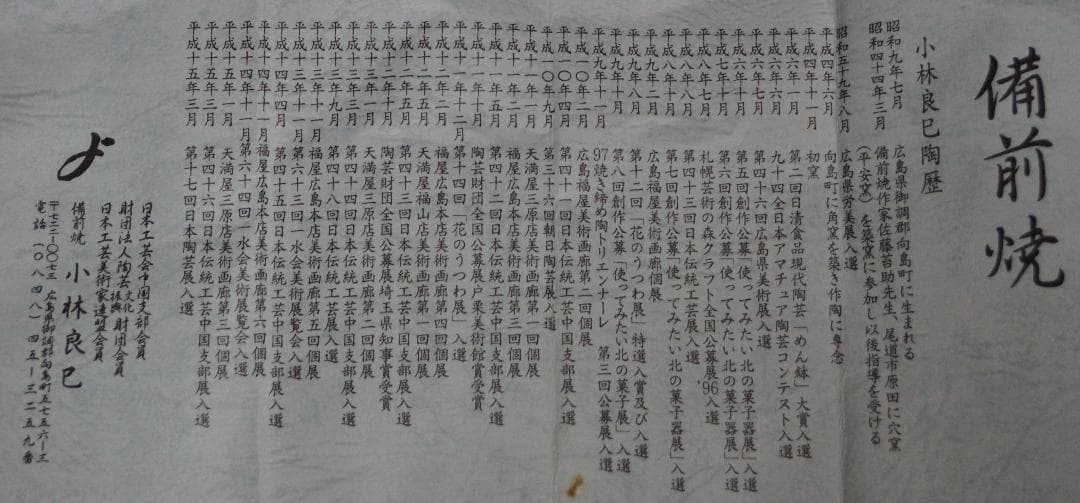 備前焼
小林良巳陶歴
昭和九年七月 広島県御調郡向島町に生まれる
昭和四十四年三月 備前焼作家佐藤苔助先生、尾道市原田に穴窯
(平安窯)を築窯に参加し以後指導を受ける
昭和五十九年八月 広島県労美展入選
平成四年六月 向島町に角窯を築き作陶に専念
平成四年十一月 初窯
平成六年一月 第二回日清食品現代陶芸「めん鉢」大賞入選
平成六年六月 九十四全日本アマチュア陶芸コンテスト入選
平成六年七月 第四十六回広島県美術展入選
平成六年十月 第五回創作公募「使ってみたい北の菓子器展」入選
平成七年十月 第六回創作公募「使ってみたい北の菓子器展」入選
平成八年七月 札幌芸術の森クラフト全国公募展'96入選
平成八年八月 第四十三回日本伝統工芸展入選
平成八年十月 第七回創作公募「使ってみたい北の菓子器展」入選
平成九年八月 広島福屋美術画廊個展
平成九年八月 第十二回「花のうつわ展」特選入賞及び入選
平成九年十月 第八回創作公募「使ってみたい北の菓子展」入選
平成九年十一月 97焼き締め陶トリエンナーレ 第三回公募展入選
平成一〇年二月 広島福屋美術画廊第二回個展
平成一〇年四月 第四十一回日本伝統工芸中国支部展入選
平成一〇年九月 第三十六回朝日陶芸展入選
平成十一年一月 天満屋三原店美術画廊第一回個展
平成十一年二月 福屋広島本店美術画廊第三回個展
平成十一年五月 第四十二回日本伝統工芸中国支部展入選
平成十一年十月 陶芸財団全国公募展戸栗美術館賞受賞
平成十一年十二月 第十四回「花のうつわ展」入選
平成十二年二月 天満屋福山店美術画廊第一回個展
平成十二年五月 福屋広島本店美術画廊第四回個展
平成十二年五月 第四十三回日本伝統工芸中国支部展入選
平成十二年十月 陶芸財団全国公募展埼玉県知事賞受賞
平成十三年一月 天満屋三原店美術画廊第二回個展
平成十三年五月 第四十四回日本伝統工芸中国支部展入選
平成十三年九月 第六十三回一水会美術展覧会入選
平成十三年十一月 福屋広島本店美術画廊第五回個展
平成十四年四月 第四十五回日本伝統工芸中国支部展入選
平成十四年十一月 福屋広島本店美術画廊第六回個展
平成十四年十一月 第六十四回一水会美術展覧会入選
平成十五年一月 天満屋三原店美術画廊第三回個展
平成十五年五月 第四十六回日本伝統工芸中国支部展入選
平成十五年三月 第十七回日本陶芸展入選
日本工芸会中国支部会員
財団法人陶芸文化振興財団会員
日本工芸美術家連盟会員
備前焼 小林良巳
〒七二二-〇〇七三 広島県御調郡向島町五七五六-三
電話(〇八四八)四五-三二五九番